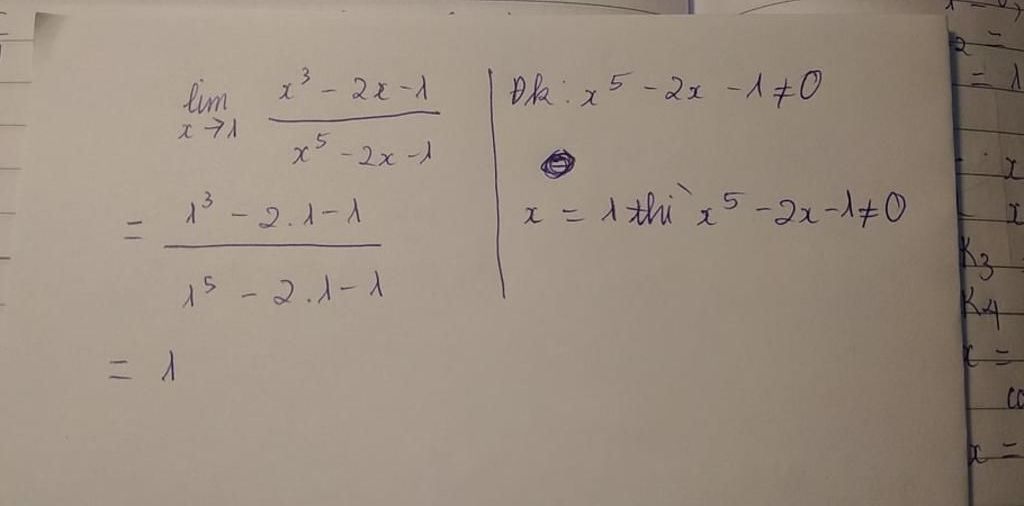 lim x→1 (x³ - 2x - 1) / (x⁵ - 2x - 1)
= (1³ - 2.1 - 1) / (1⁵ - 2.1 - 1)
= 1
Đk: x⁵ - 2x - 1 ≠ 0
x = 1 thì x⁵ - 2x - 1 ≠ 0
2 =
= 1
x
x
K3
K4
x =
x =